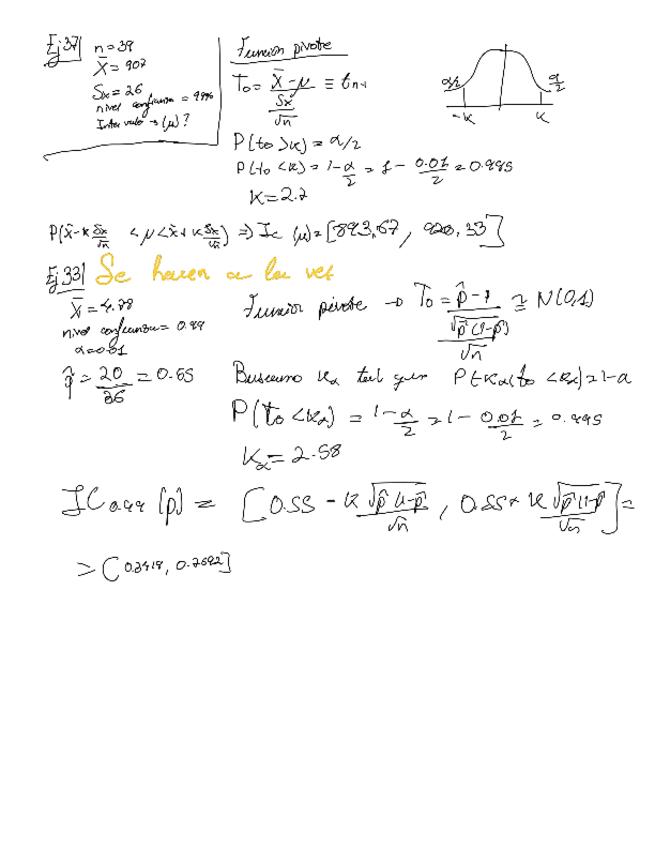 Ej 37)
n = 39
X̄ = 907
Sx = 26
nivel confianza = 99%
Intervalo → (μ)?
Funcion pivote
To = (X̄ - μ) / (Sx/√n) ≡ t n-1
α/2
α/2
-k
k
P(to > k) = α/2
P(to < k) = 1 - α/2 = 1 - 0.01/2 = 0.995
k = 2.7
P(x̄ - k Sx/√n < μ < x̄ + k Sx/√n) ⇒ Ic (μ) = [893,67, 920,33]
Ej 33) Se hacen a la vez
X̄ = 4.78
nivel confianza = 0.99
α = 0.01
Funcion pivote → To = (p̂ - p) / (√p̂(1-p̂)/√n) ≅ N(0,1)
p̂ = 20/36 = 0.55
Buscamos kα tal que P(-kα < to < kα) = 1 - α
P(to < kα) = 1 - α/2 = 1 - 0.01/2 = 0.995
kα = 2.58
IC 0.99 (p) = [0.55 - k √p̂(1-p̂)/√n , 0.55 + k √p̂(1-p̂)/√n] =
= [0.3418, 0.7692]